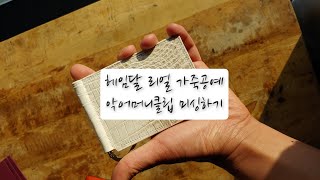 헤임달 리얼 가죽공예
악어머니클립 미싱하기